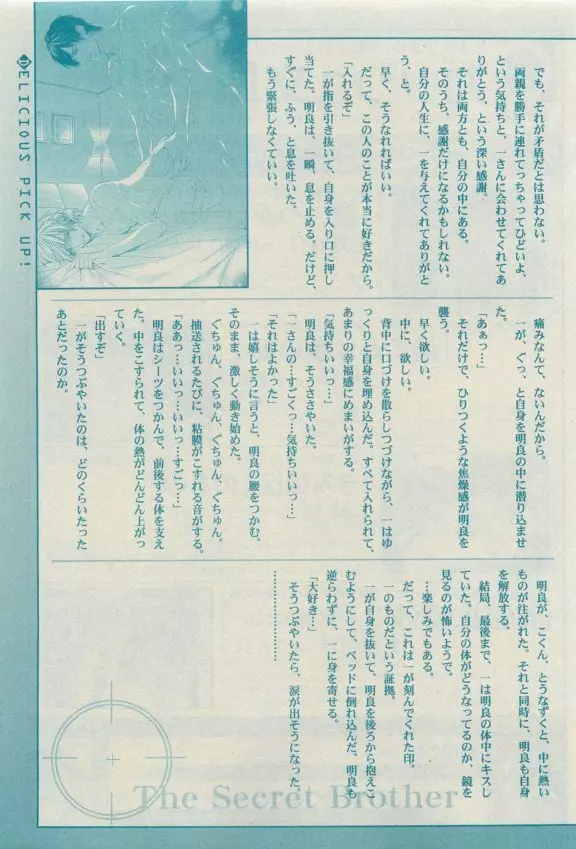 DELICIOUS PICK UP!
でも、それが矛盾だとは思わない。
両親を勝手に連れてっちゃってひどいよ、
という気持ちと、一さんに会わせてくれてあ
りがとう、という深い感謝。
それは両方とも、自分の中にある。
そのうち、感謝だけになるかもしれない。
自分の人生に、一を与えてくれてありがと
う、と。
早く、そうなればいい。
だって、この人のことが本当に好きだから。
「入れるぞ」
一が指を引き抜いて、自身を入り口に押し
当てた。明良は、一瞬、息を止める。だけど、
すぐに、ふう、と息を吐いた。
もう緊張しなくていい。
痛みなんて、ないんだから。
一が、ぐっ、と自身を明良の中に潜り込ませ
た。
「あぁっ…」
それだけで、ひりつくような焦燥感が明良を
襲う。
早く欲しい。
中に、欲しい。
背中に口づけを散らしつづけながら、一はゆ
っくりと自身を埋め込んだ。すべて入れられて、
あまりの幸福感にめまいがする。
「気持ちいいっ…」
明良は、そうささやいた。
「一さんの…すごくっ…気持ちいいっ…」
「それはよかった」
一は嬉しそうに言うと、明良の腰をつかむ。
そのまま、激しく動き始めた。
ぐちゅん、ぐちゅん、ぐちゅん、ぐちゅん。
抽送されるたびに、粘膜がこすれる音がする。
「ああっ…いいっ…いいっ…すごっ…」
明良はシーツをつかんで、前後する体を支え
た。中をこすられて、体の熱がどんどん上がっ
ていく。
「出すぞ」
一がそうつぶやいたのは、どのくらいたった
あとだったのか。
明良が、こくん、とうなずくと、中に熱い
ものが注がれた。それと同時に、明良も自身
を解放する。
結局、最後まで、一は明良の体中にキスし
ていた。自分の体がどうなってるのか、鏡を
見るのが怖いようで。
…楽しみでもある。
だって、これは一が刻んでくれた印。
一のものだという証拠。
一が自身を抜いて、明良を後ろから抱えこ
むようにして、ベッドに倒れ込んだ。明良も
逆らわずに、一に身を寄せる。
「大好き…」
そうつぶやいたら、涙が出そうになった。
…………………………
The Secret Brother